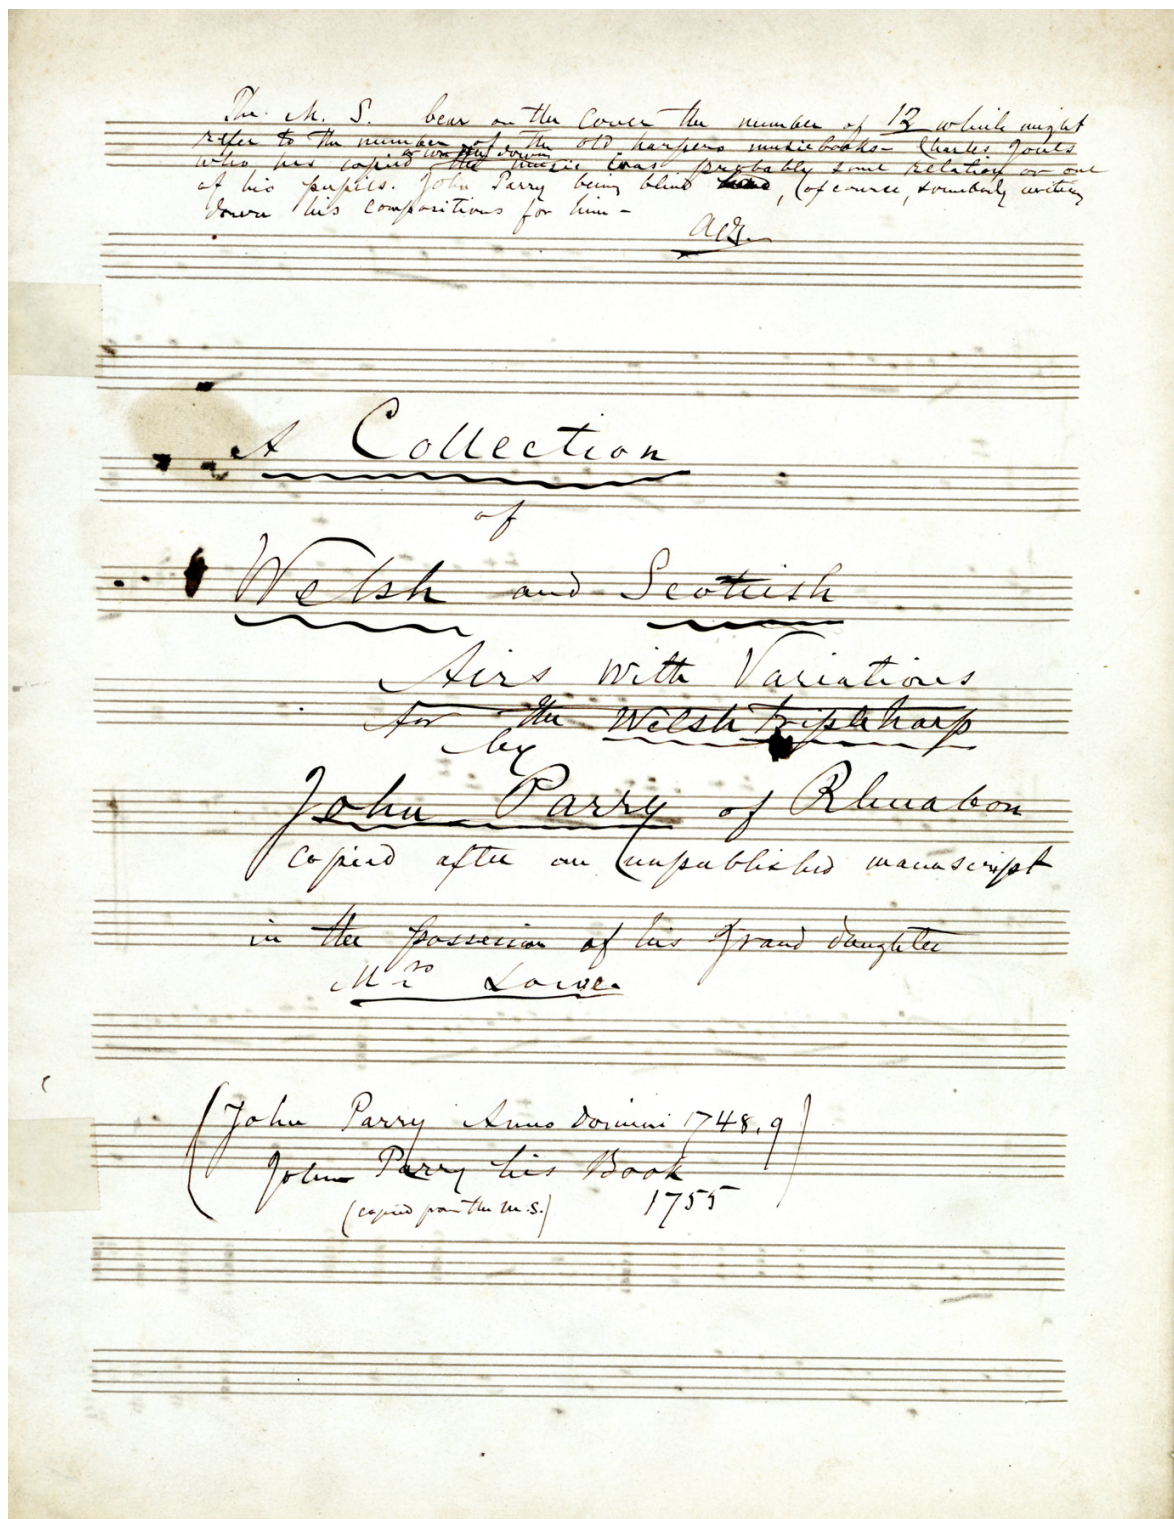 The M. S. bear on the Cover the number of 12 which might
refer to the number of the old harpers musicbooks - Charles Jones
or written down
who has copied the music was probably some relation or one
of his pupils. John Parry being blind, (of course, somebody writing
down his compositions for him -
A Collection
of
Welsh and Scottish
Airs with Variations
for the Welsh tripleharp
by
John Parry of Rhuabon
copied after an unpublished manuscript
in the possession of his Grand daughter
Mrs Lowe.
(John Parry Anno Domini 1748,9)
John Parry his Book
(copied from the M.S.) 1755